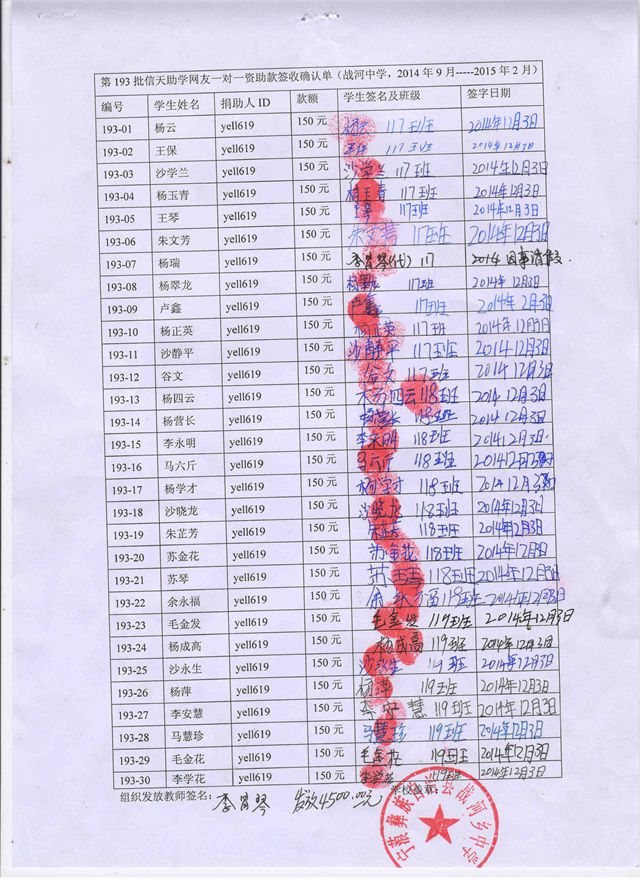 第 193 批信天助学网友一对一资助款签收确认单（战河中学，2014 年 9 月-----2015 年 2 月）
编号 学生姓名 捐助人 ID 款额 学生签名及班级 签字日期
193-01 杨云 yell619 150 元 杨云 117班 2014年12月3日
193-02 王保 yell619 150 元 王保 117班 2014年12月3日
193-03 沙学兰 yell619 150 元 沙学兰 117班 2014年12月3日
193-04 杨玉青 yell619 150 元 杨玉青 117班 2014年12月3日
193-05 王琴 yell619 150 元 王琴 117班 2014年12月3日
193-06 朱文芳 yell619 150 元 朱文芳 117班 2014年12月3日
193-07 杨瑞 yell619 150 元 李富琴(代) 117 2014 因事请假.
193-08 杨翠龙 yell619 150 元 杨翠龙 117班 2014年12月3日
193-09 卢鑫 yell619 150 元 卢鑫 117班 2014年2月3日
193-10 杨正英 yell619 150 元 杨正英 117班 2014年12月3日
193-11 沙静平 yell619 150 元 沙静平 117班 2014 12月3日
193-12 谷文 yell619 150 元 谷文 117班 2014 12月3日
193-13 杨四云 yell619 150 元 杨四云 118班 2014 12月3日
193-14 杨营长 yell619 150 元 杨营长 118班 2014 12月3日
193-15 李永明 yell619 150 元 李永明 118班 2014 12月3日.
193-16 马六斤 yell619 150 元 马六斤 118班 2014 12月3日
193-17 杨学才 yell619 150 元 杨学才 118班 2014 12月3日
193-18 沙晓龙 yell619 150 元 沙晓龙 118班 2014年12月3日
193-19 朱芷芳 yell619 150 元 朱芷芳 118班 2014年12月3日
193-20 苏金花 yell619 150 元 苏金花 118班 2014年12月3日
193-21 苏琴 yell619 150 元 苏琴 118班 2014年12月3日
193-22 余永福 yell619 150 元 余永福 119班 2014年12月3日
193-23 毛金发 yell619 150 元 毛金发 119班 2014年12月3日
193-24 杨成高 yell619 150 元 杨成高 119班 2014年12月3日
193-25 沙永生 yell619 150 元 沙永生 119班 2014年12月3日
193-26 杨萍 yell619 150 元 杨萍 119班 2014年12月3日
193-27 李安慧 yell619 150 元 李安慧 119班 2014年12月3日
193-28 马慧珍 yell619 150 元 马慧珍 119班 2014年12月3日
193-29 毛金花 yell619 150 元 毛金花 119班 2014年12月3日
193-30 李学花 yell619 150 元 李学花 119班 2014年12月3日
组织发放教师签名： 李富琴 发放4500.00元 学校盖章：
宁蒗彝族自治县战河乡中学